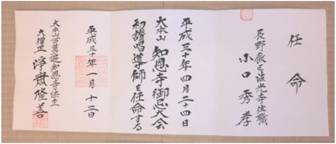 任命
長野教区法性寺住職
小口秀孝
平成三十年四月二十四日
大本山知恩寺御忌大会
初諷唱導師を任命する
平成三十年一月十二日
大本山百萬遍知恩寺法主
大僧正